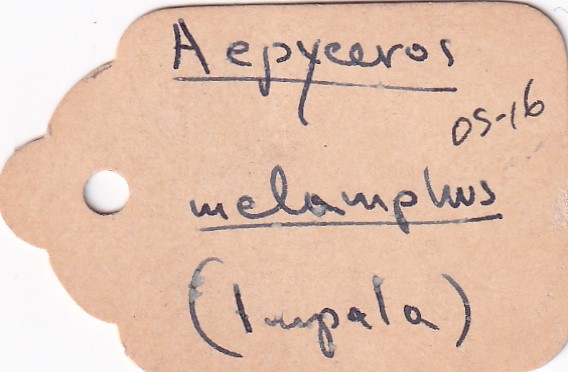 Aepyceros
OS-16
melamphus
(Impala)